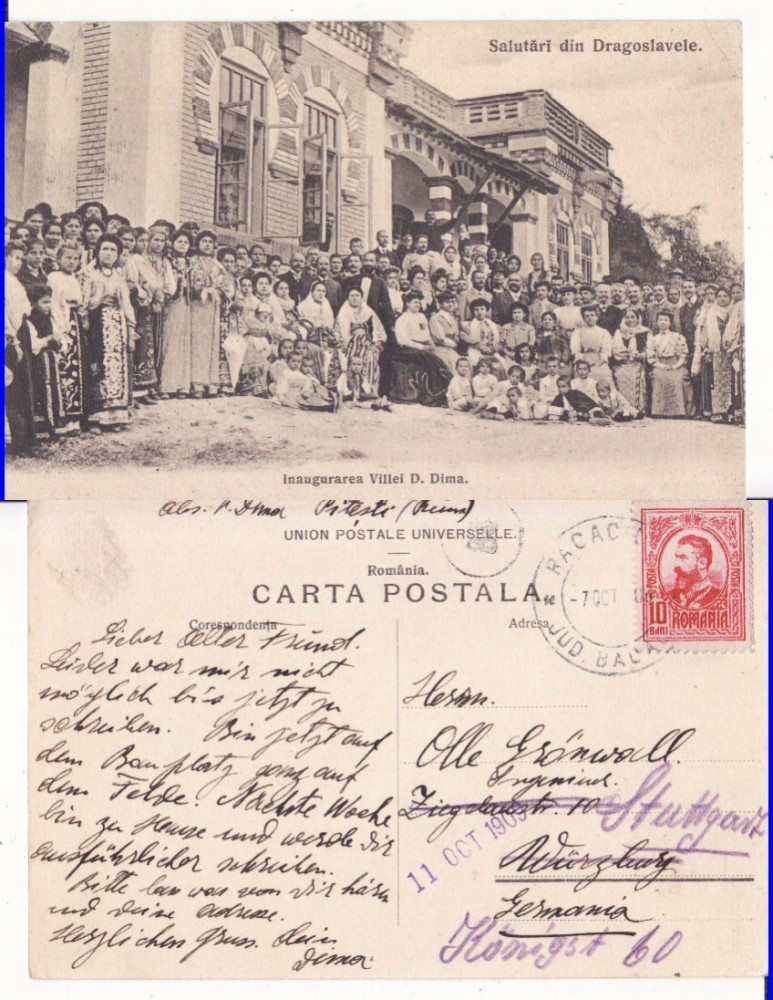 Salutări din Dragoslavele.
Inaugurarea Villei D. Dima.
Abs. P. Dima Pitesti (Rum)
UNION POSTALE UNIVERSELLE.
România.
CARTA POSTALA
Corespondența
Adresa
RACAC
-7 OCT
JUD. BACAU
POSTA
POSTA
10
BANI
ROMANIA
Lieber Freund.
Leider war mir nicht
möglich bis jetzt zu
schreiben. Bin jetzt auf
dem Bauplatz ganz auf
dem Felde. Nächste Woche
bin zu Hause und werde dir
ausführlicher schreiben.
Bitte von dir hören
und deine Adresse.
Herzlichen Gruss. dein
Dima
Herrn.
Olle Grönwall.
Ingenieur.
10
Stuttgart
11 OCT 1909
Würzburg
Germania
Königst 60